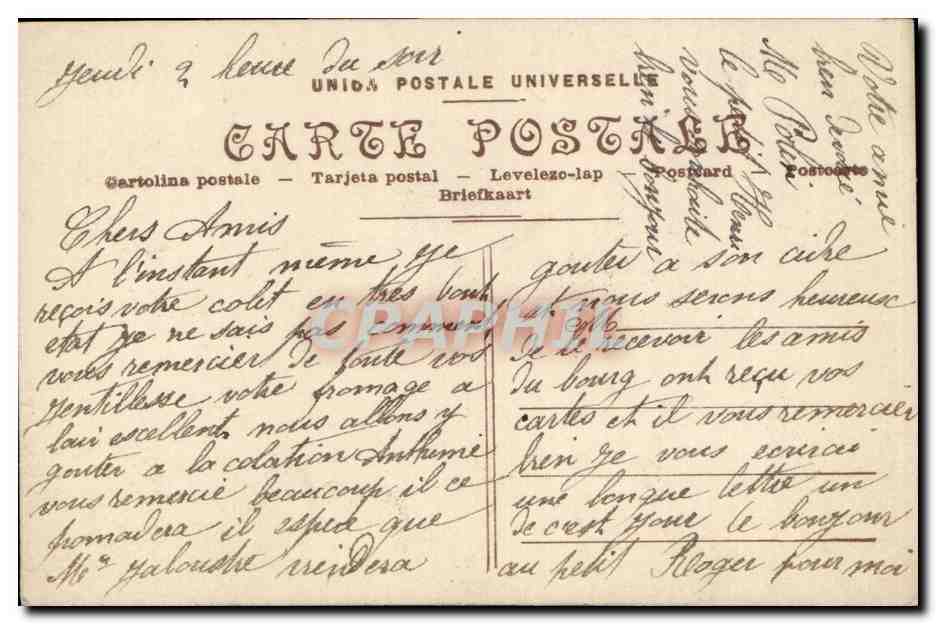 Jeudi 2 heure du soir
UNION POSTALE UNIVERSELLE
CARTE POSTALE
Cartolina postale — Tarjeta postal — Levelezo-lap Postcard Postcarte
Briefkaart
Chers Amis
A l'instant même Je
reçois votre colit en très bont
etat Je ne sais pas comment
vous remercier de toute vos
gentillesse votre fromage a
lair escellent nous allons y
gouter a la colation Anthime
vous remercie beaucoup il ce
fromadera il espere que
Mr Jaloustre viendera
gouter a son cidre
et nous serons heureuse
de le recevoir les amis
du bourg ont reçu vos
cartes et il vous remercier
bien Je vous ecrirai
une longue lettre un
de c'est jour le bonjour
au petit Roger pour moi
Votre amie
bien devoué
M Potin
le petit Henri
vous souhaite
bien le bonjour
CPAPHIL